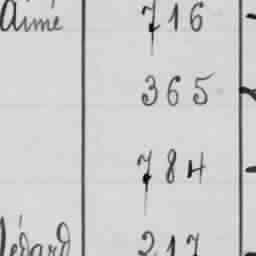 Aimé 716
365
784
Médard 217